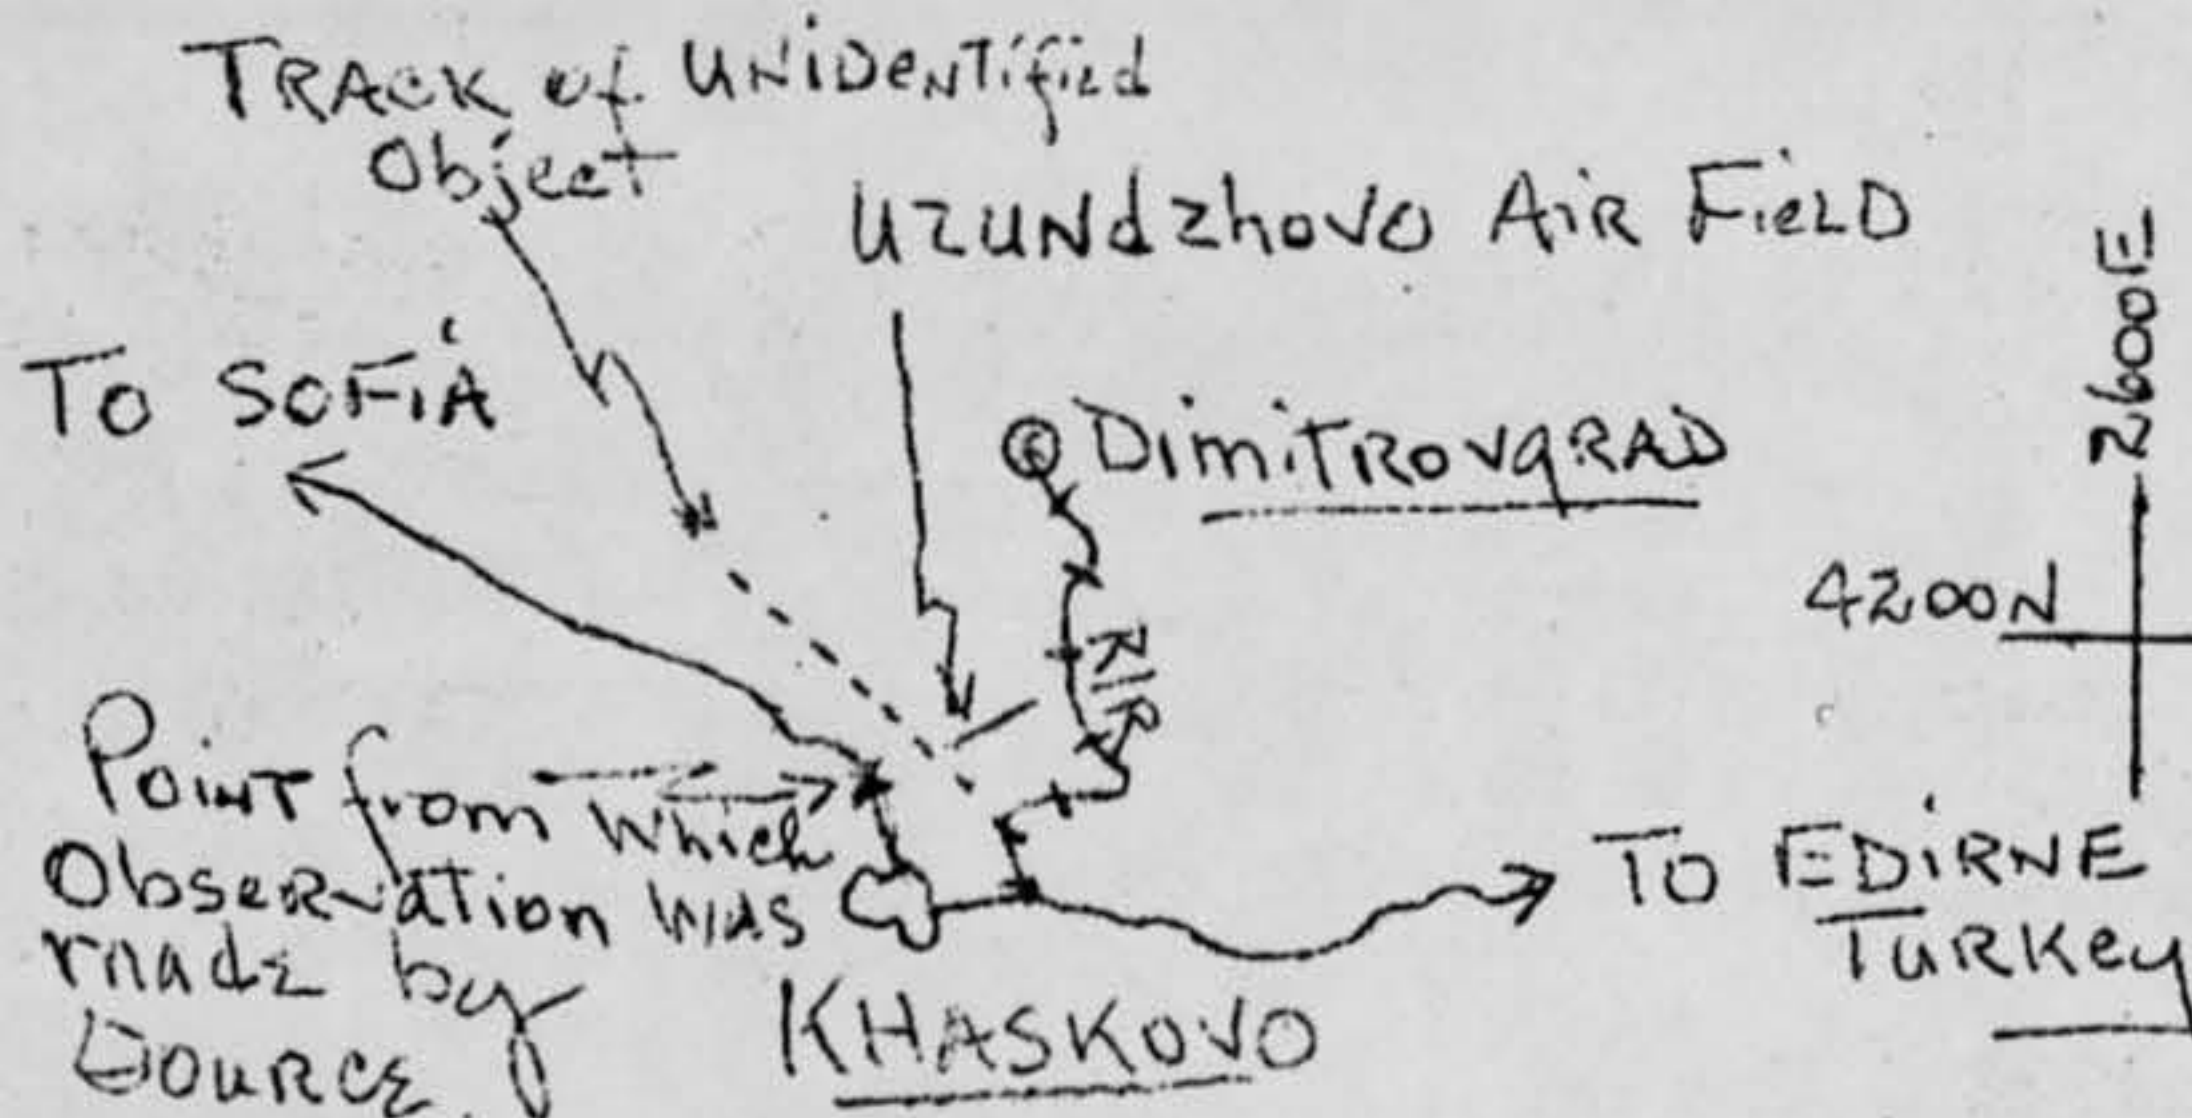 TRACK of UNIDENTIFIED
Object
UZUNdzhoVO AIR FIELD
TO SOFIA
DIMITROVgRAD
2600E
4200N
R/R
POINT from which
OBSERVATION WAS
made by
SOURCE.
KHASKOVO
TO EDIRNE
TURKey